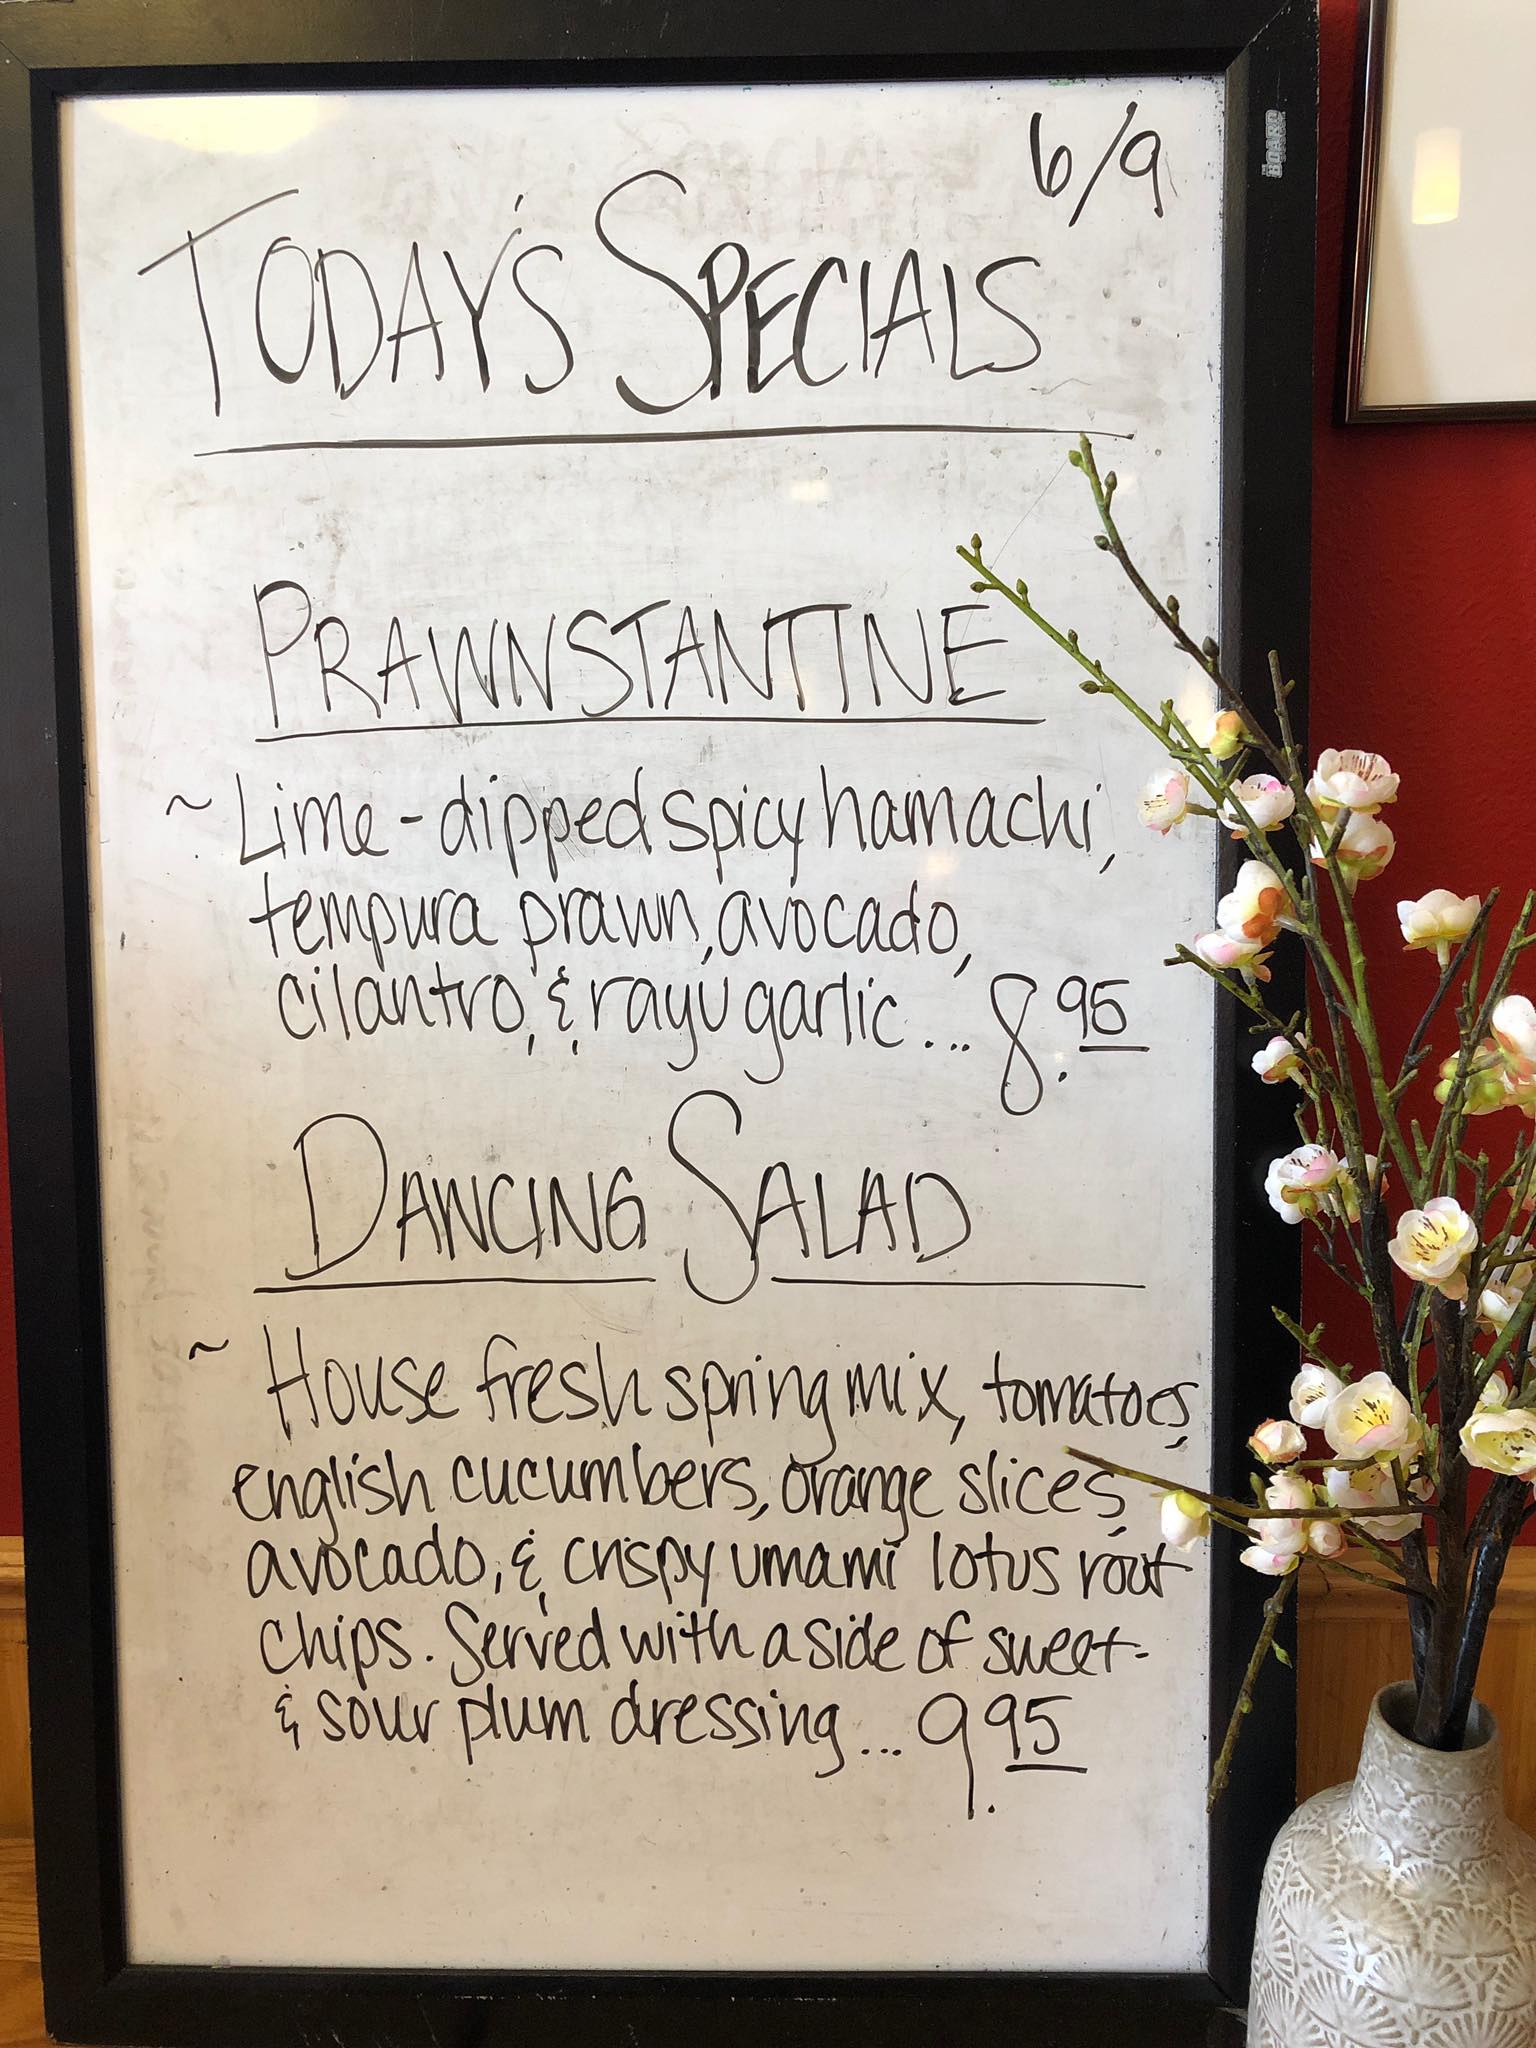 6/9
TODAY'S SPECIALS
PRAWNSTANTINE
~ Lime-dipped spicy hamachi,
tempura prawn, avocado,
cilantro, & rayu garlic... 8.95
DANCING SALAD
~ House fresh spring mix, tomatoes,
english cucumbers, orange slices,
avocado, & crispy umami lotus root
chips. Served with a side of sweet-
& sour plum dressing... 9.95